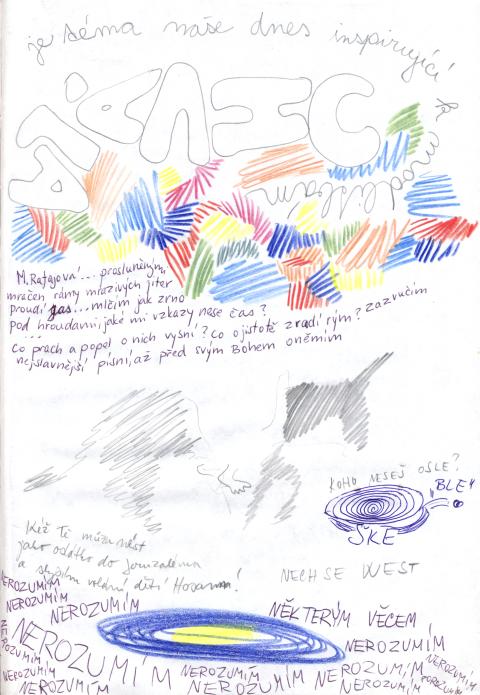 je téma naše dnes inspirující k
modlitbám
M. Ratajová:...prosluněným
mračen rámy mrazivých jiter
proudí jas...mlčím jak zrno
pod hroudami, jaké mi vzkazy nese čas?
co prach a popel o nich vyšní? Co o jistotě zradí rým? Zazvučím
nejslavnější písní, až před svým Bohem oněmím
KOHO NESEŠ OSLE?
"BLE"
ŠKE
Kéž Tě můžu nést
jako oslátko do Jeruzaléma
a slyším volání dětí Hosanna!
NECH SE VEST
NEROZUMÍM
NEROZUMÍM
NEROZUMÍM
NĚKTERÝM VĚCEM
NEROZUMÍM
NEROZUMÍM
NEROZUMÍM
NEROZUMÍM
NEROZUMÍM
NEROZUMÍM
NEROZUMÍM
NEROZUMÍM
NEROZUMÍM
NEROZUMÍM
NEROZUMÍM